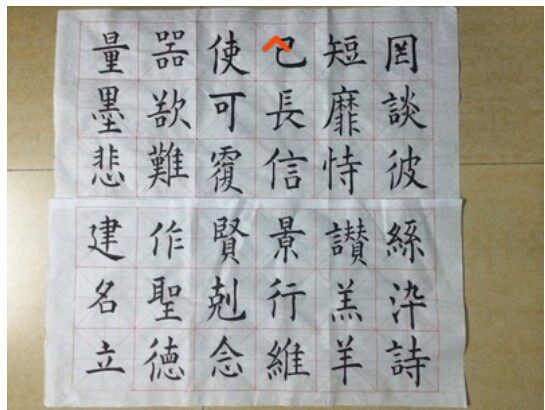 罔談彼
短靡恃
己長信
使可覆
器欲難
量墨悲
絲染詩
讃羔羊
景行維
賢剋念
作聖德
建名立